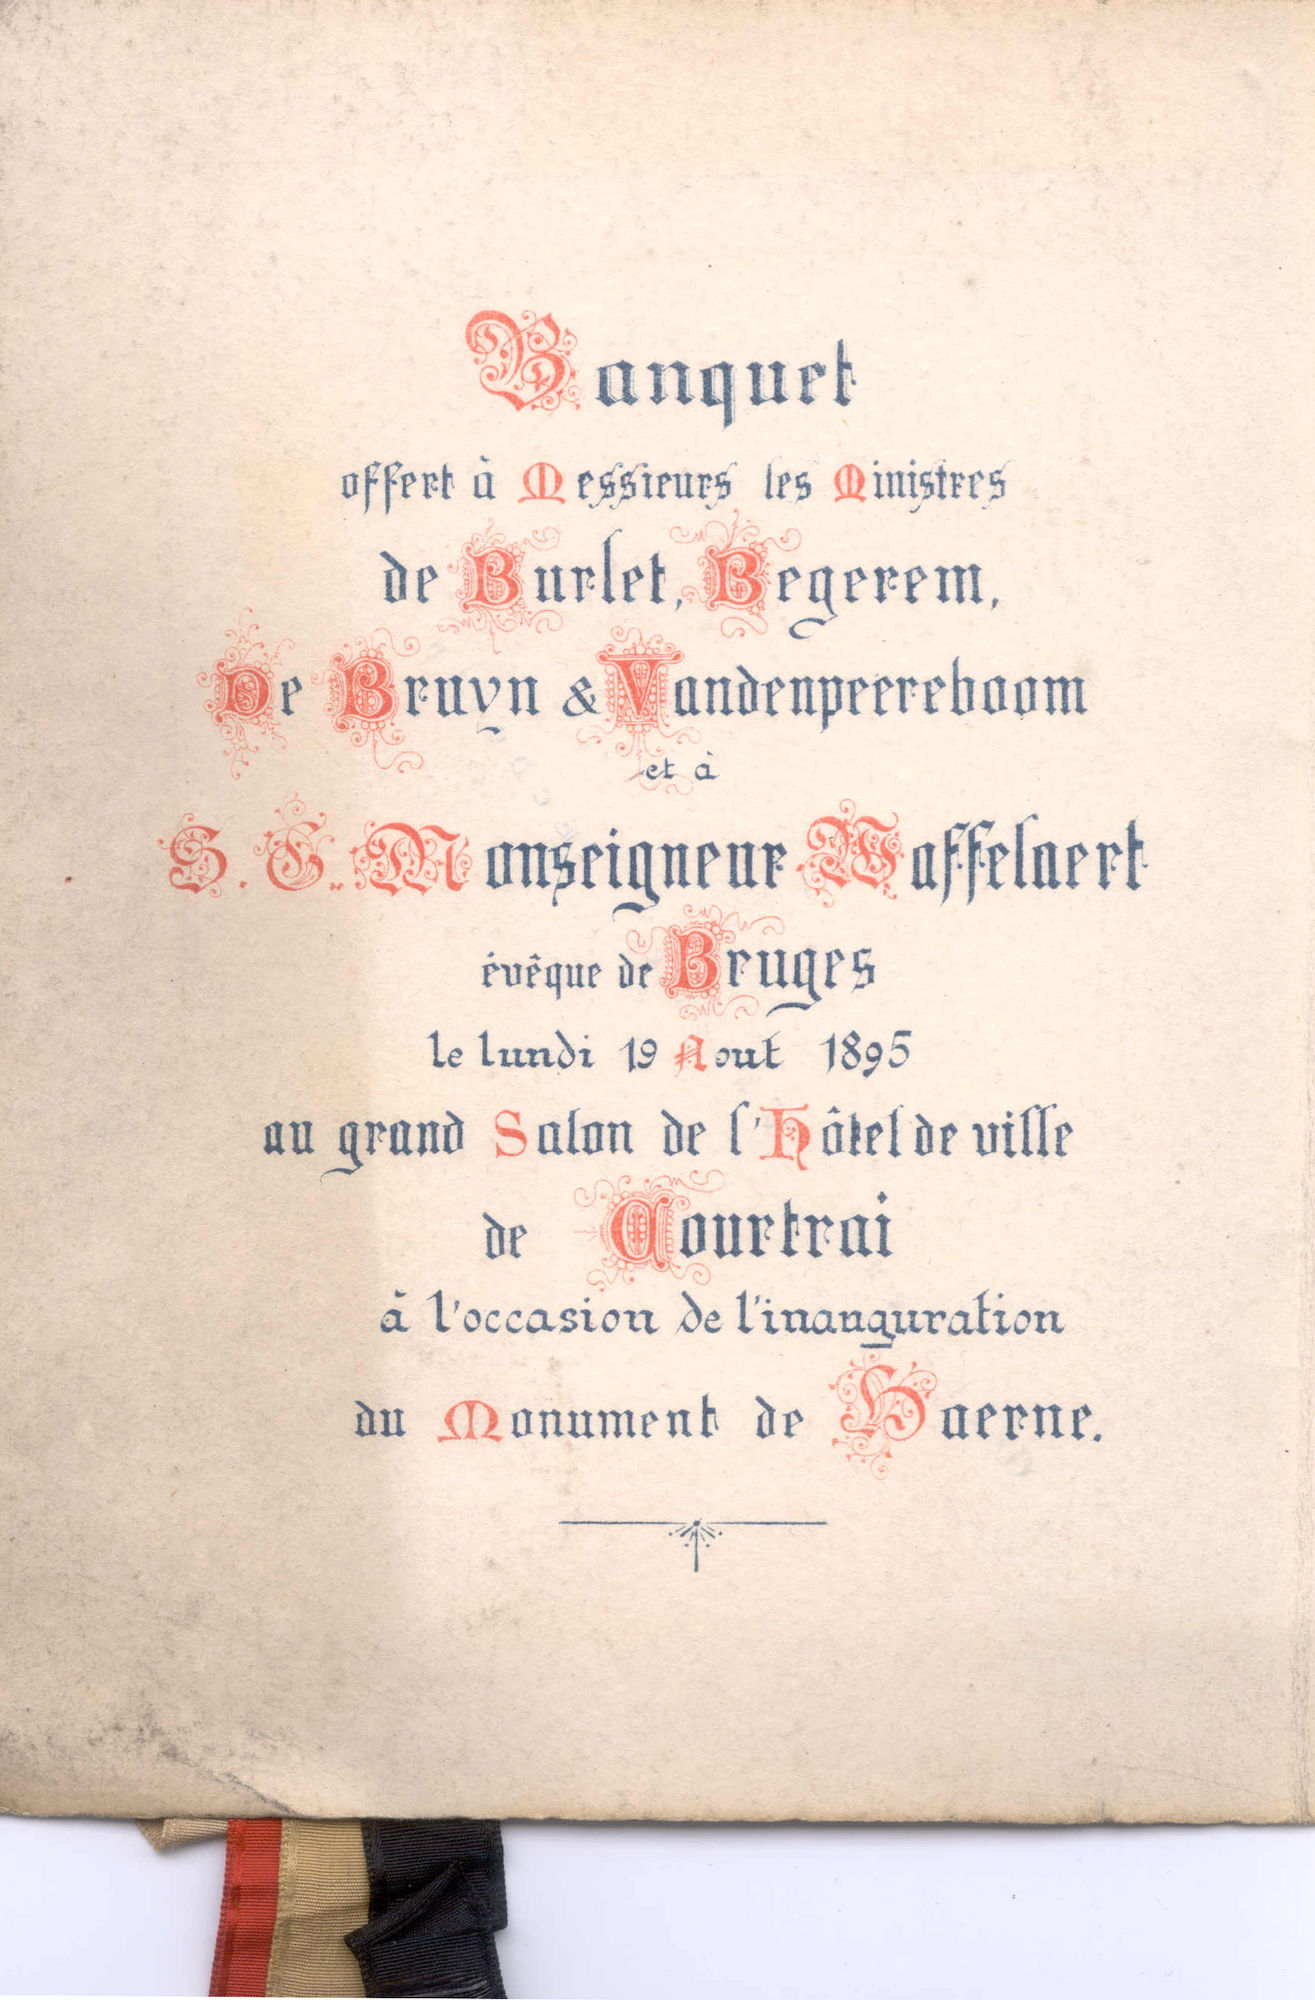 Banquet
offert à Messieurs les Ministres
de Burlet, Begerem,
De Bruyn & Vandenpeereboom
et à
S. G. Monseigneur Waffelaert
évêque de Bruges
le lundi 19 Aout 1895
au grand Salon de l'Hôtel de ville
de Courtrai
à l'occasion de l'inauguration
du Monument de Haerne.